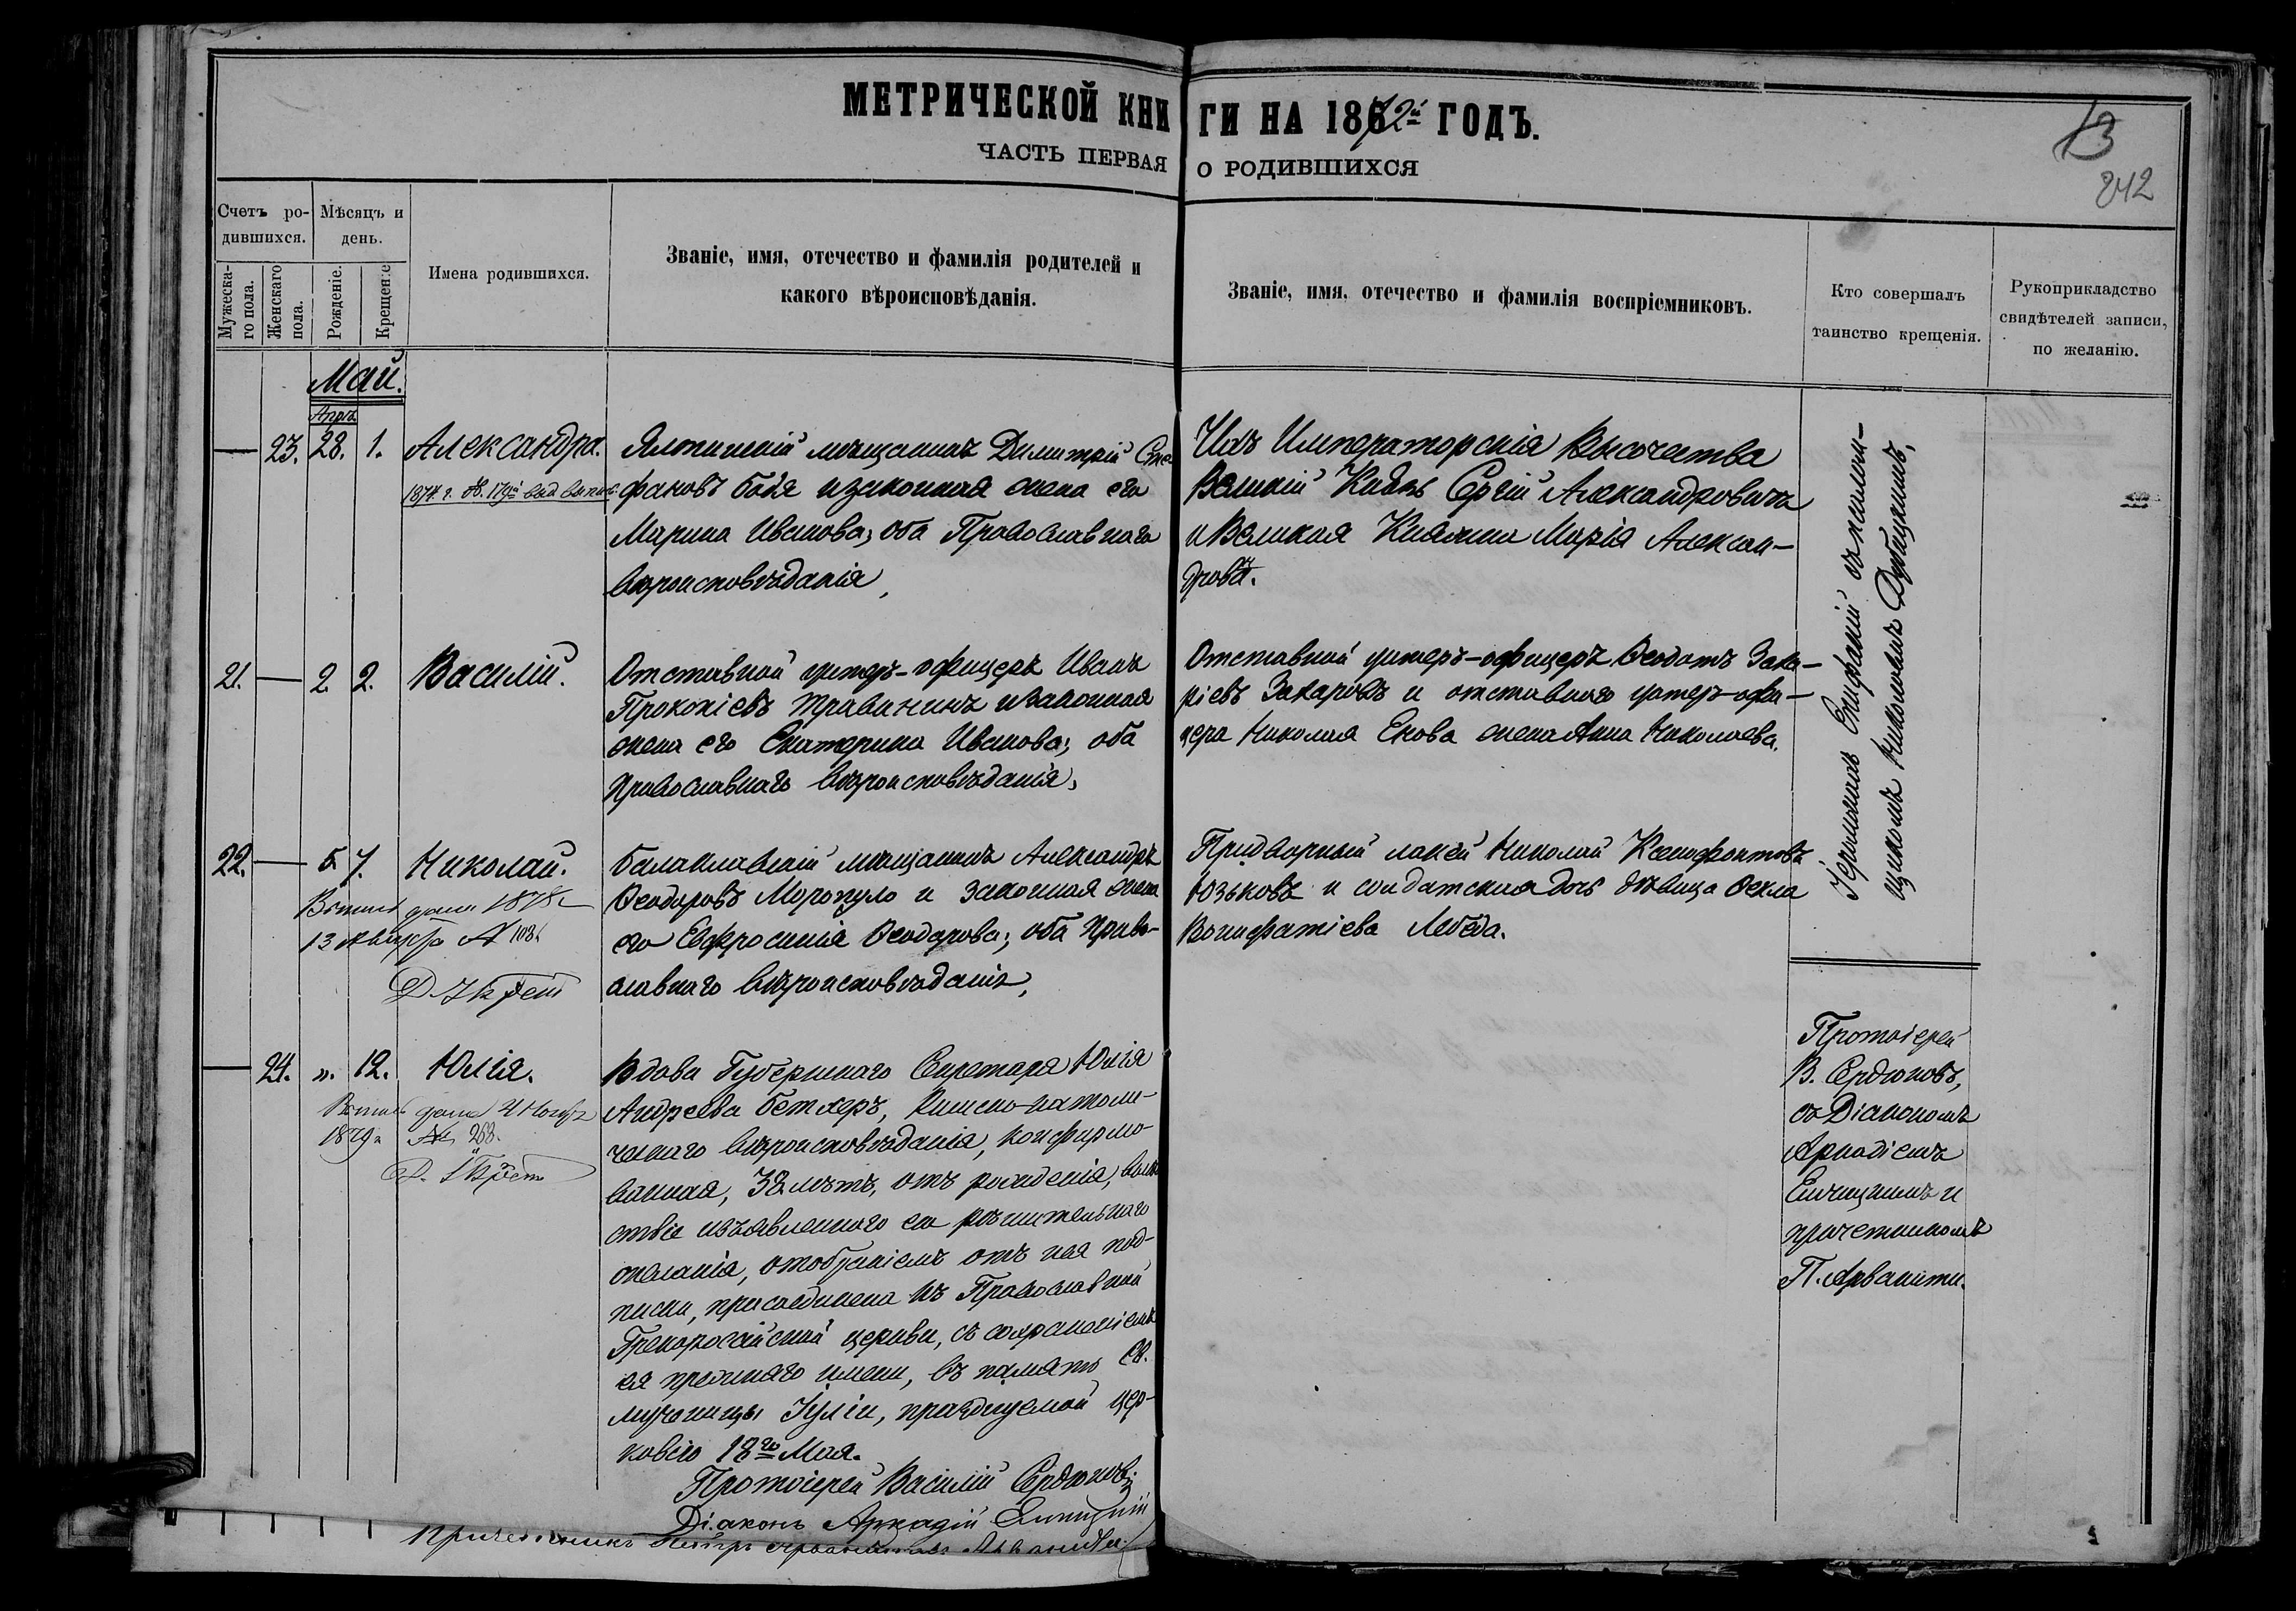 МЕТРИЧЕСКОЙ КНИГИ НА 1872й ГОДЪ.
ЧАСТЬ ПЕРВАЯ О РОДИВШИХСЯ
13
242
Счетъ ро-
дившихся.
Мѣсяцъ и
день.
Мужеска-
го пола.
Женскаго
пола.
Рожденіе.
Крещеніе
Имена родившихся.
Званіе, имя, отечество и фамилія родителей и
какого вѣроисповѣданія.
Званіе, имя, отечество и фамилія воспріемниковъ.
Кто совершалъ
таинство крещенія.
Рукоприкладство
свидѣтелей записи,
по желанію.
Май.
Апрѣ
23. 28. 1. Александра.
Ялтинскій мѣщанинъ Димитрій Сте
фановъ изаконная жена его
Марина Иванова; оба Православнаго
вѣроисповѣданія,
Ихъ Императорскія Высочества
Великій Князь Сергій Александровичъ
и Великая Княжна Марія Алексан-
дровна.
21. 2. 2. Василій.
Отставной унтеръ-офицеръ Иванъ
Прокопіевъ Траванинъ изаконная
жена его Екатерина Иванова; оба
православнаго вѣроисповѣданія,
Отставной унтеръ-офицеръ Ѳеодотъ Заха-
ріевъ Захаровъ и отставнаго унтеръ-офи-
цера Николая Енова жена Анна Николаева.
22. 5. 7. Николай.
1878
13 Августа № 108
Балаклавскій мѣщанинъ Александръ
Ѳеодоровъ Моропуло и законная жена
его Евфросинія Ѳеодорова; оба Право-
славнаго вѣроисповѣданія,
Придворный лакей Николай Ксенофонтовъ
Юзьковъ и солдатская дочь дѣвица Ѳекла
Вонифатіева Лебеда.
Іеромонахъ Епифаній съ псалом-
щикомъ Николаемъ Дубицкимъ,
24. ". 12. Юлія.
1879 № 263.
Вдова Губернскаго Секретаря Юлія
Андреева Бетхеръ, Римско-католи-
ческаго вѣроисповѣданія, конфирмо
ванная, 38 лѣтъ, отъ рожденія, вслѣд
ствіе изъявленнаго ею рѣшительнаго
желанія, отобраніемъ отъ нея под-
писки, присоединена къ Православной
Грекороссійской церкви, съ сохраненіемъ
ея прежняго имени, въ память св.
мученицы Іуліи, празднуемой цер-
ковію 18го Мая.
Протоіерей Василій Сердюковъ
Діаконъ Аркадій
Причетникъ Петръ
Протоіерей
В. Сердюковъ,
съ Діакономъ
Аркадіемъ
причетникомъ
П. Арванити.